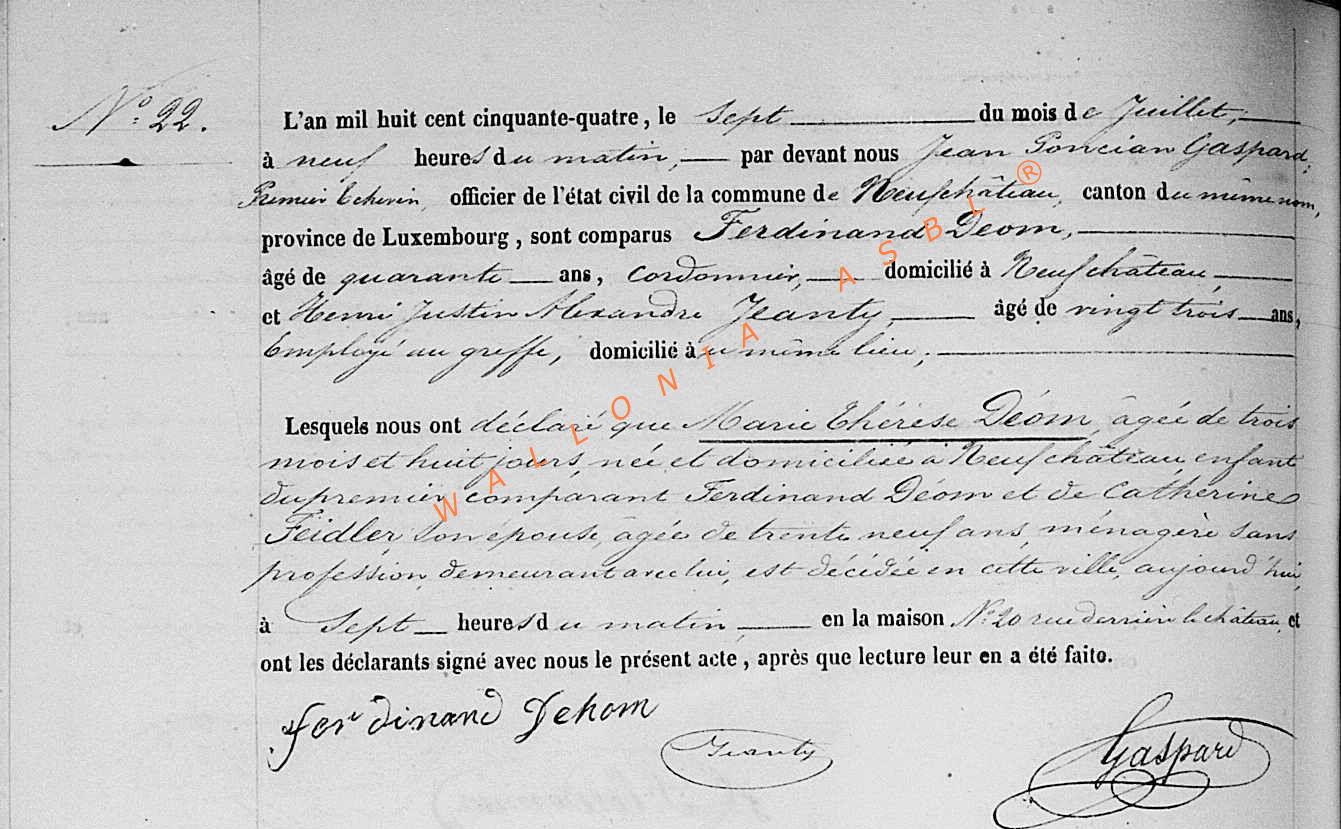 N° 22.
L'an mil huit cent cinquante-quatre, le sept du mois de Juillet,
à neuf heures du matin, par devant nous Jean Poncian Gaspard,
Premier Echevin, officier de l'état civil de la commune de Neufchâteau, canton du même nom,
province de Luxembourg, sont comparus Ferdinand Déom,
âgé de quarante ans, Cordonnier, domicilié à Neufchâteau,
et Henri Justin Alexandre Jeanty, âgé de vingt trois ans,
Employé au greffe, domicilié au même lieu,
Lesquels nous ont déclaré que Marie Thérèse Déom, âgée de trois
mois et huit jours, née et domiciliée à Neufchâteau, enfant
du premier comparant Ferdinand Déom et de Catherine
Feidler, son épouse, âgée de trente neuf ans, ménagère sans
profession, demeurant avec lui, est décédée en cette ville, aujourd'hui,
à Sept heures du matin, en la maison N° 20 rue derrière le château, et
ont les déclarants signé avec nous le présent acte, après que lecture leur en a été faite.
ferdinand Dehom
Jeanty
Gaspard
WALLONIA ASBL ®